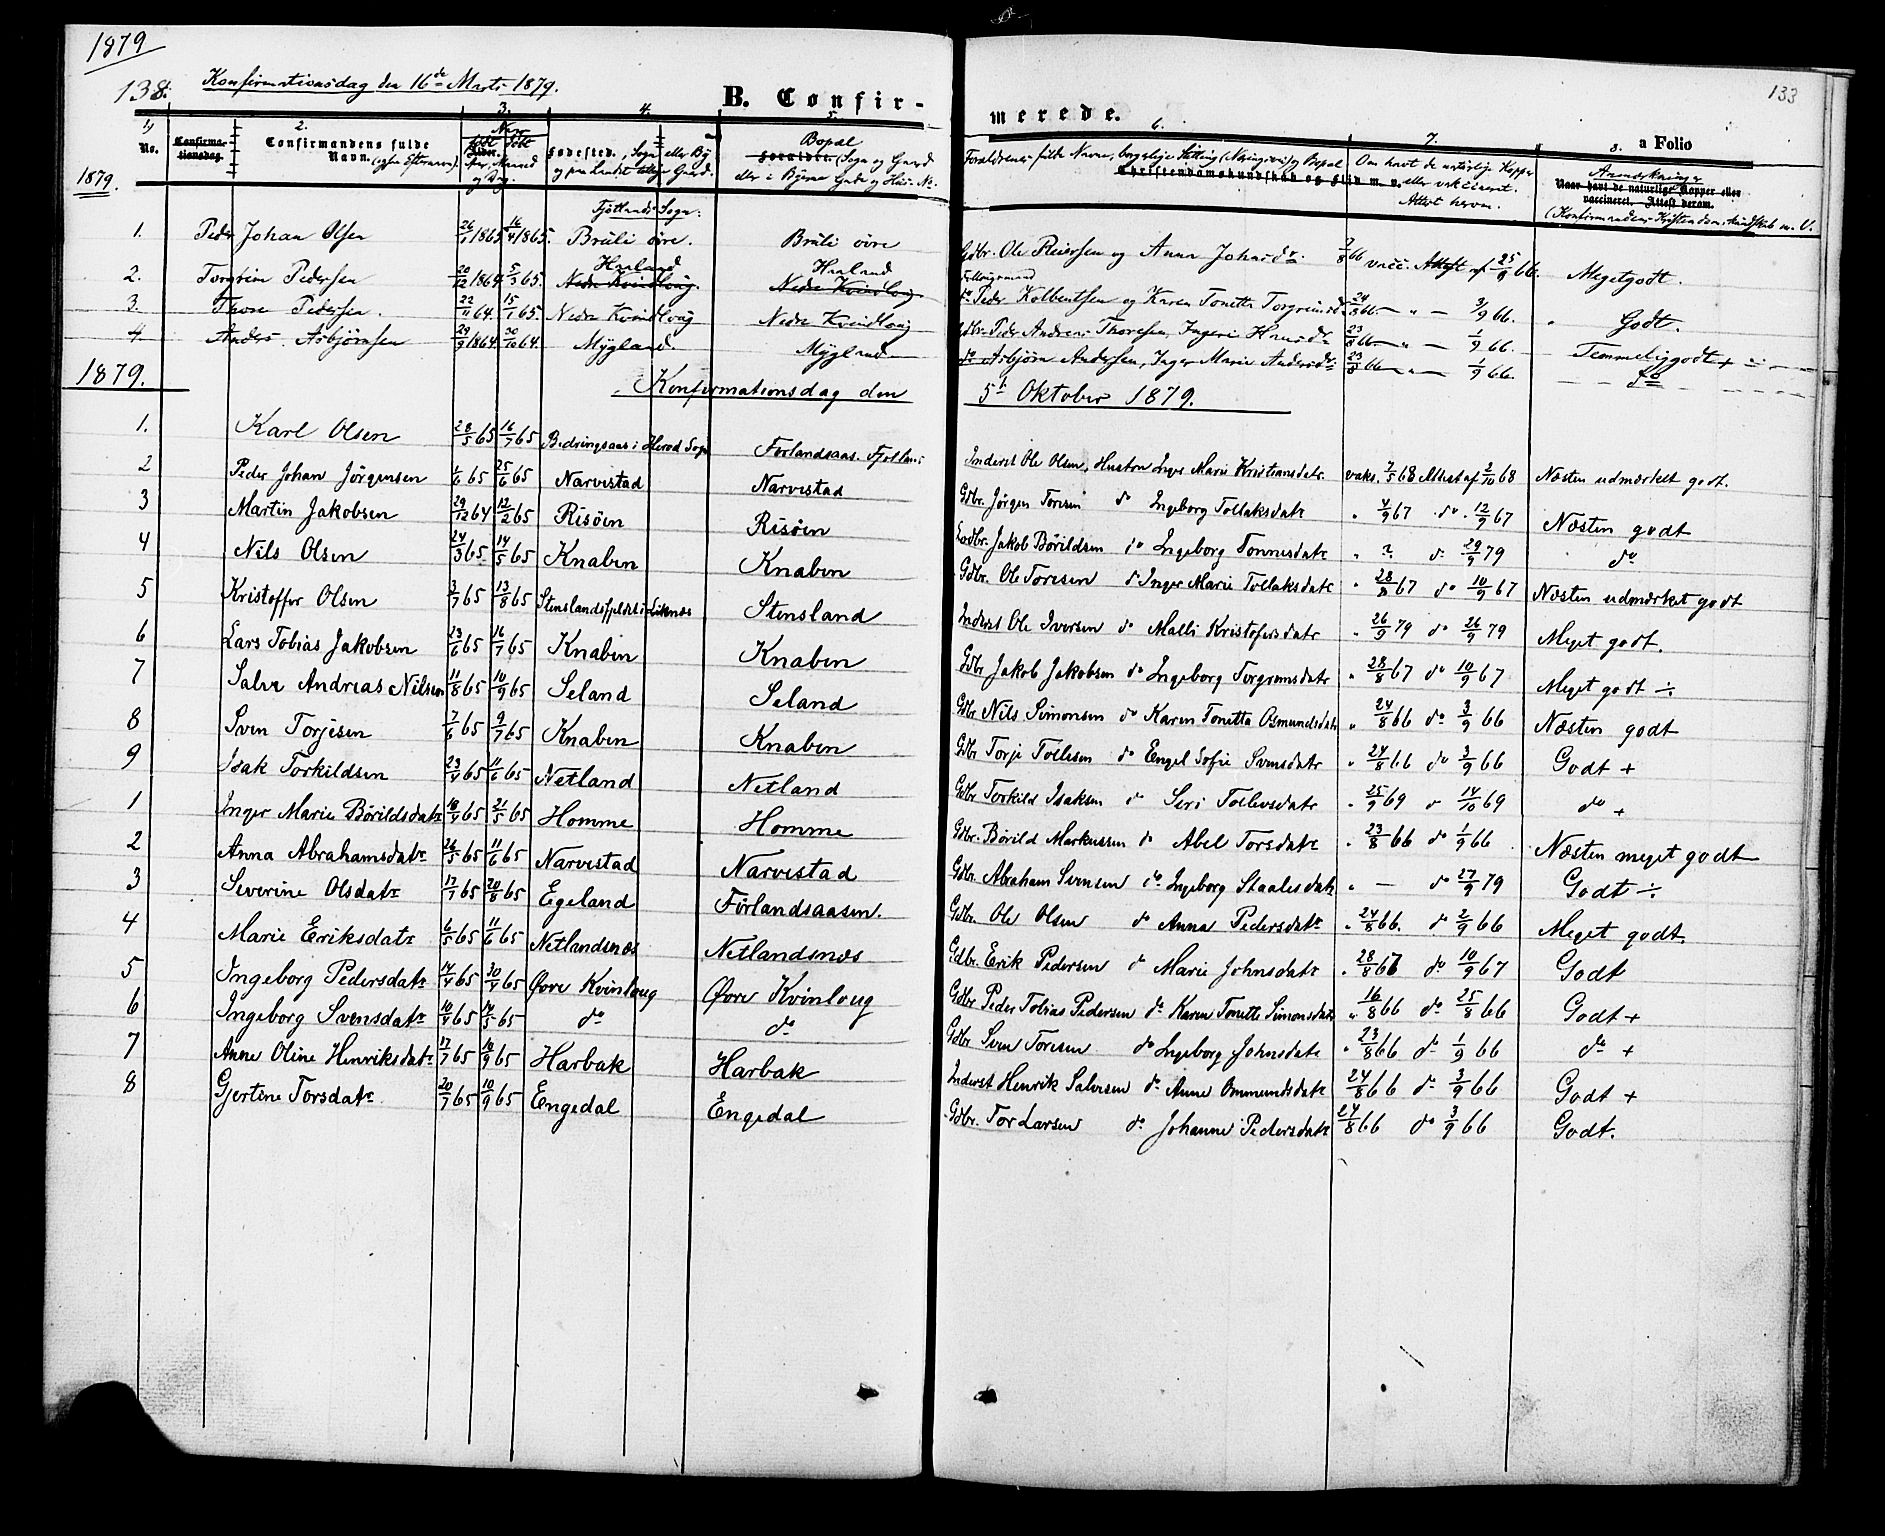 1879
138. Konfirmationsdag den 16de Marts 1879.
B. Confir-
merede.
133
a Folio
1) No.
Confirmationsdag.
2. Confirmandens fulde Navn. (ogsa Efternavn).
3. Naar født døbt
4. Fødested, Sogn eller By
5. Bopæl (Sogn og Gaard eller i Byerne Gade og Huus No.
6. Forældrenes fulde Navne, borgerlige Stilling (Næringsvei) og Bopæl
Christendomskundskab og Flid m. v.
7. Om havt de naturlige Kopper eller vaccineret. Attest herom.
8. Anmærkninger
Naar havt de naturlige Kopper eller vaccineret. Attest derom.
(Konfirmandens Kristendomskundskab m. V.
1879.
Fjotlands Sogn:
1. Peder Johan Olsen 26/1 1865 16/4 1865. Brüli øvre. Brüli øvre Gdbr. Ole Reiersen og Anna Johnsdr. vacc. Attest af 25/9 66. Meget godt.
2. Torgrim Pedersen 20/12 1864 5/3 65. Haaland Nedre Kvindlaug. Haaland Nedre Kvindlog do Peder Kolbentsen og Karen Tonetta Torgrimsd. 24/8 66 " — 3/9 66. Godt.
3. Thore Pedersen. 22/11 64. 15/1 65. Nedre Kvindlog Nedre Kvindlog Gdbr. Peder Andreas Thoresen, Ingeri Hansdr 23/8 66 — " — 1/9 66. Temmelig godt +
4. Anders Asbjørnsen 29/9 1864 30/10 64. Mygland. Mygland do Asbjørn Andersen, Inger Marie Andersdr. 23/8 66 — " — 1/9 66. do
1879. Konfirmationsdag den 5te Oktober 1879.
1. Karl Olsen 28/5 65 16/7 65 Bedringsaas i Herad Sogn Førlandsaas. Fjotland Inderst Ole Olsen, Hustru Inger Marie Kristiansdatr. vaks. 7/5 68 Attest af 2/10 68 Næsten udmærket godt.
2 Peder Johan Jörgensen 1/6 65 25/6 65 Narvestad Narvestad Gdbr. Jörgen Toresen do Ingeborg Tollaksdatr " 4/9 67 do. 12/9 67 Næsten godt
3 Martin Jakobsen 29/12 64 12/2 65 Risöen Risöen Gdbr. Jakob Börildsen do Ingeborg Tonnesdatr " ? do 29/9 79 do
4 Nils Olsen 24/3 65 14/5 65 Knaben Knaben Gdbr. Ole Toresen do Inger Marie Tollaksdatr " 28/8 67 do 10/9 67 Næsten udmærket godt
5 Kristoffer Olsen 3/7 65 13/8 65 Stenslandsfjeldet i Liknæs Stensland Inderst Ole Iversen do Malli Kristofersdatr " 26/9 79 do 26/9 79 Meget godt.
6 Lars Tobias Jakobsen 23/6 65 16/7 65 Knaben Knaben Gdbr Jakob Jakobsen do Ingeborg Torgrimsdatr " 28/8 67 do 10/9 67. Meget godt ÷
7 Salve Andreas Nilsen 11/8 65 10/9 65 Seland Seland Gdbr Nils Simonsen do Karen Tonetta Osmundsdatr " 24/8 66 do 3/9 66 Næsten godt
8 Sven Torjesen 7/6 65 9/7 65 Knaben Knaben Gdbr Torje Tollesen do Engel Sofie Svensdatr " 24/8 66 do 3/9 66 Godt +
9 Isak Torkildsen 23/4 65 11/6 65 Netland Netland Gdbr Torkild Isaksen do Seri Tollevsdatr " 25/9 69 do 14/10 69 do +
1 Inger Marie Börildsdatr 18/4 65 21/5 65 Homme Homme Gdbr. Börild Markussen do Abel Torsdatr " 23/8 66 do 1/9 66 Næsten meget godt
2 Anna Abrahamsdatr 26/5 65 11/6 65 Narvestad Narvestad Gdbr. Abraham Svensen do Ingeborg Staalesdatr " — do 27/9 79 Godt ÷
3 Severine Olsdatr 17/7 65 20/8 65 Egeland Förlandsaasen. Gdbr. Ole Olsen do Anna Pedersdatr " 24/8 66. do 2/9 66 Meget godt.
4 Marie Eriksdatr 6/5 65 11/6 65 Netlandsnæs Netlandsnæs Gdbr. Erik Pedersen do Marie Johnsdatr " 28/8 67 do 10/9 67 Godt
5 Ingeborg Pedersdatr 14/4 65 30/4 65 Øvre Kvinloug Øvre Kvinloug Gdbr Peder Tobias Pedersen do Karen Tonette Simonsdatr " 16/8 66 do 25/8 66 Godt +
6 Ingeborg Svensdatr 10/4 65 14/5 65 do do Gdbr Sven Toresen do Ingeborg Johnsdatr " 23/8 66 do 1/9 66 do +
7 Anne Oline Henriksdatr 17/7 65 10/9 65 Harbak Harbak Inderst Henrik Salvesen do Anne Ommundsdatr 24/8 66 do 3/9 66 Godt +
8 Gjertine Torsdatr. 20/7 65 10/9 65 Engedal Engedal Gdbr. Tor Larsen do Johanne Pedersdatr 24/8 66 do 3/9 66 Godt.